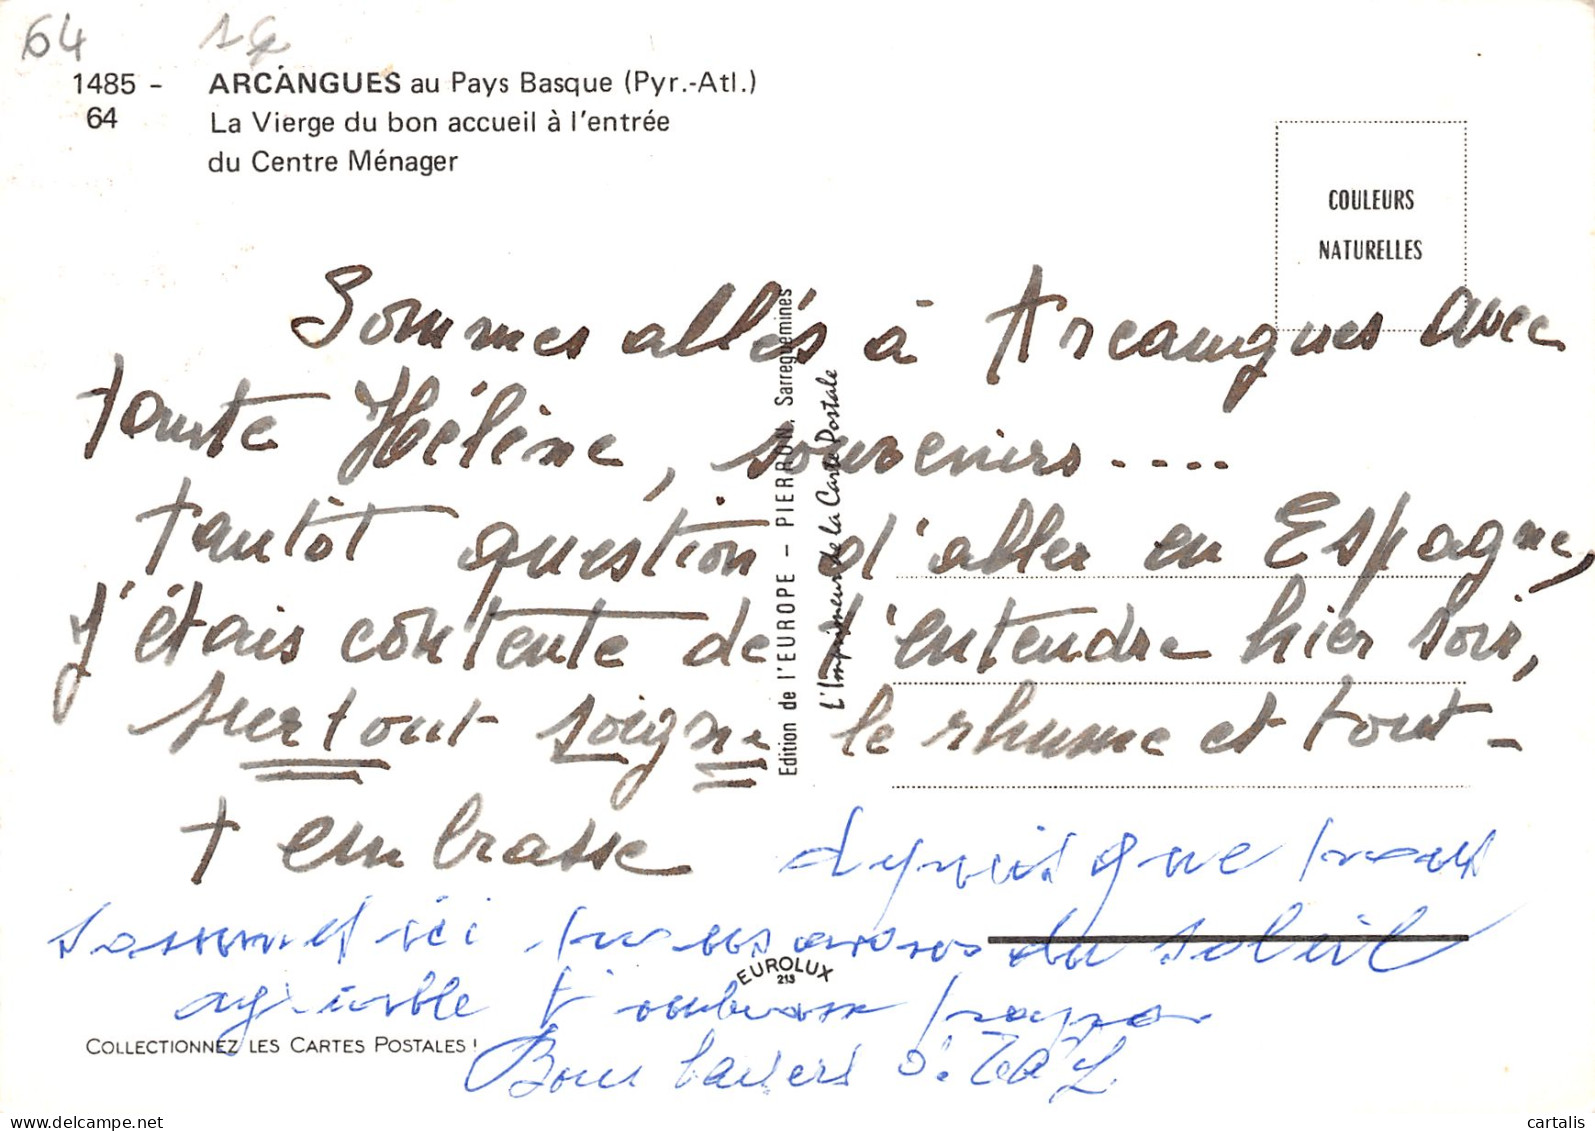 64
1485 - ARCANGUES au Pays Basque (Pyr.-Atl.)
64 La Vierge du bon accueil à l'entrée
du Centre Ménager
COULEURS
NATURELLES
Sommes allés à Arcangues avec
tante Hélène, souvenirs....
tantôt question d'aller en Espagne,
j'étais contente de t'entendre hier soir,
surtout soigne le rhume et tout-
t embrasse
depuis que nous
sommes ici nous avons du soleil
agréable t'embrasse
Bons baisers
Edition de l'EUROPE - PIERRON, Sarreguemines
L'Imprimeur de la Carte Postale
EUROLUX
213
COLLECTIONNEZ LES CARTES POSTALES !
delcampe.net
cartalis